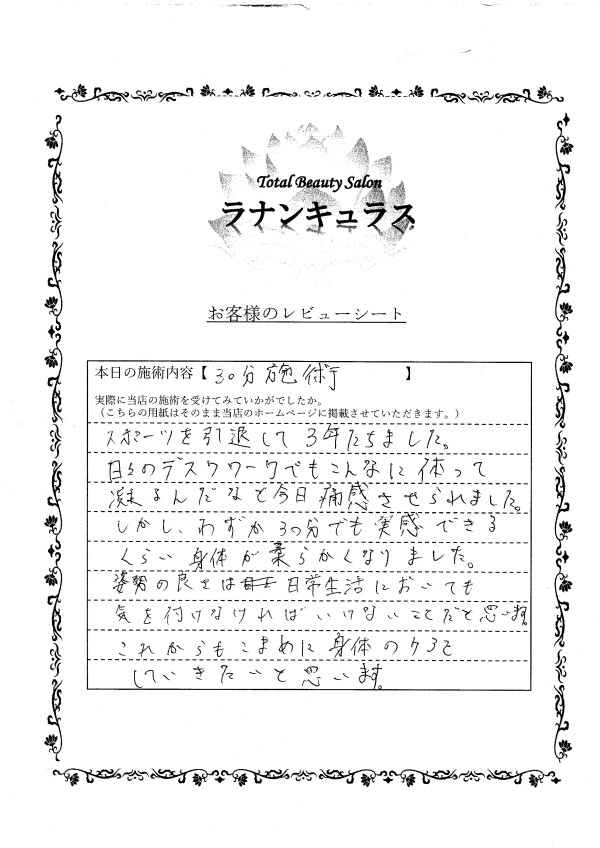 Total Beauty Salon
ラナンキュラス
お客様のレビューシート
本日の施術内容【 30分施術 】
実際に当店の施術を受けてみていかがでしたか。
(こちらの用紙はそのまま当店のホームページに掲載させていただきます。)
スポーツを引退して3年たちました。
日々のデスクワークでもこんなに体って
凝るんだなと今日痛感させられました。
しかし、わずか30分でも実感できる
くらい身体が柔らかくなりました。
姿勢の良さは日常生活においても
気を付けなければいけないことだと思います。
これからもこまめに身体のケアを
していきたいと思います。